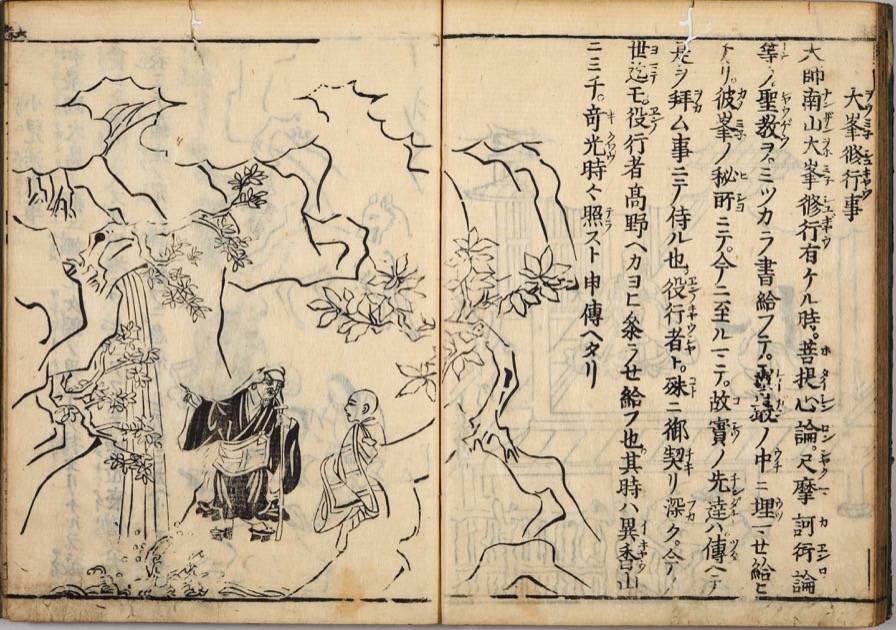 大峯修行事
大師南山大峯修行有ケル時。菩提心論。尺摩訶衍論
等ノ聖教ヲ。ミツカラ書給フテ。ノ中ニ埋マセ給ヒ
ケリ。彼峯ノ秘所ニテ。今ニ至ルマテ。故實ノ先達ハ傳ヘテ
是ヲ拝ム事ニテ侍ル也。役行者ト。殊ニ御契リ深ク。今ノ
世迄モ。役行者高野ヘカヨヒ参ラセ給フ也其時ハ異香山
ニミチ。奇光時々照スト申傳ヘタリ